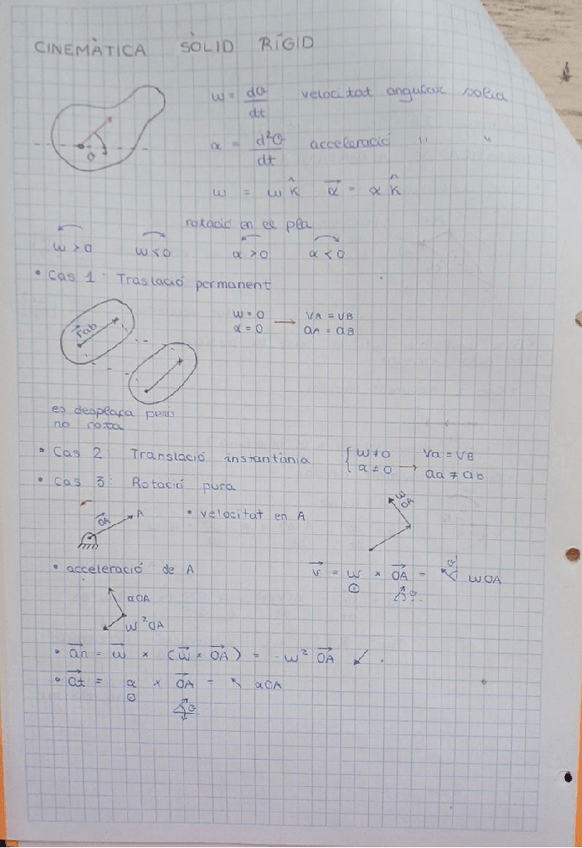 CINEMÀTICA SÒLID RÍGID
ω = dθ/dt velocitat angular
α = d²θ/dt acceleració " "
O
ω = ω k̂ α⃗ = α k̂
rotació en el pla
ω > 0 ω < 0 α > 0 α < 0
• Cas 1: Traslació permanent
r⃗ab
ω = 0 → VA = VB
α = 0 aA = aB
es desplaça però
no rota
• Cas 2 Translació instantània { ω ≠ 0 Va = VB
{ α ≠ 0 → aa ≠ ab
• Cas 3: Rotació pura
OA A • velocitat en A ωOA
• acceleració de A v⃗ = ω × OA = ωOA
αOA
ω²OA
• an = ω × (ω × OA) = -ω² OA ↙ .
• at = α × OA = ↖ αOA